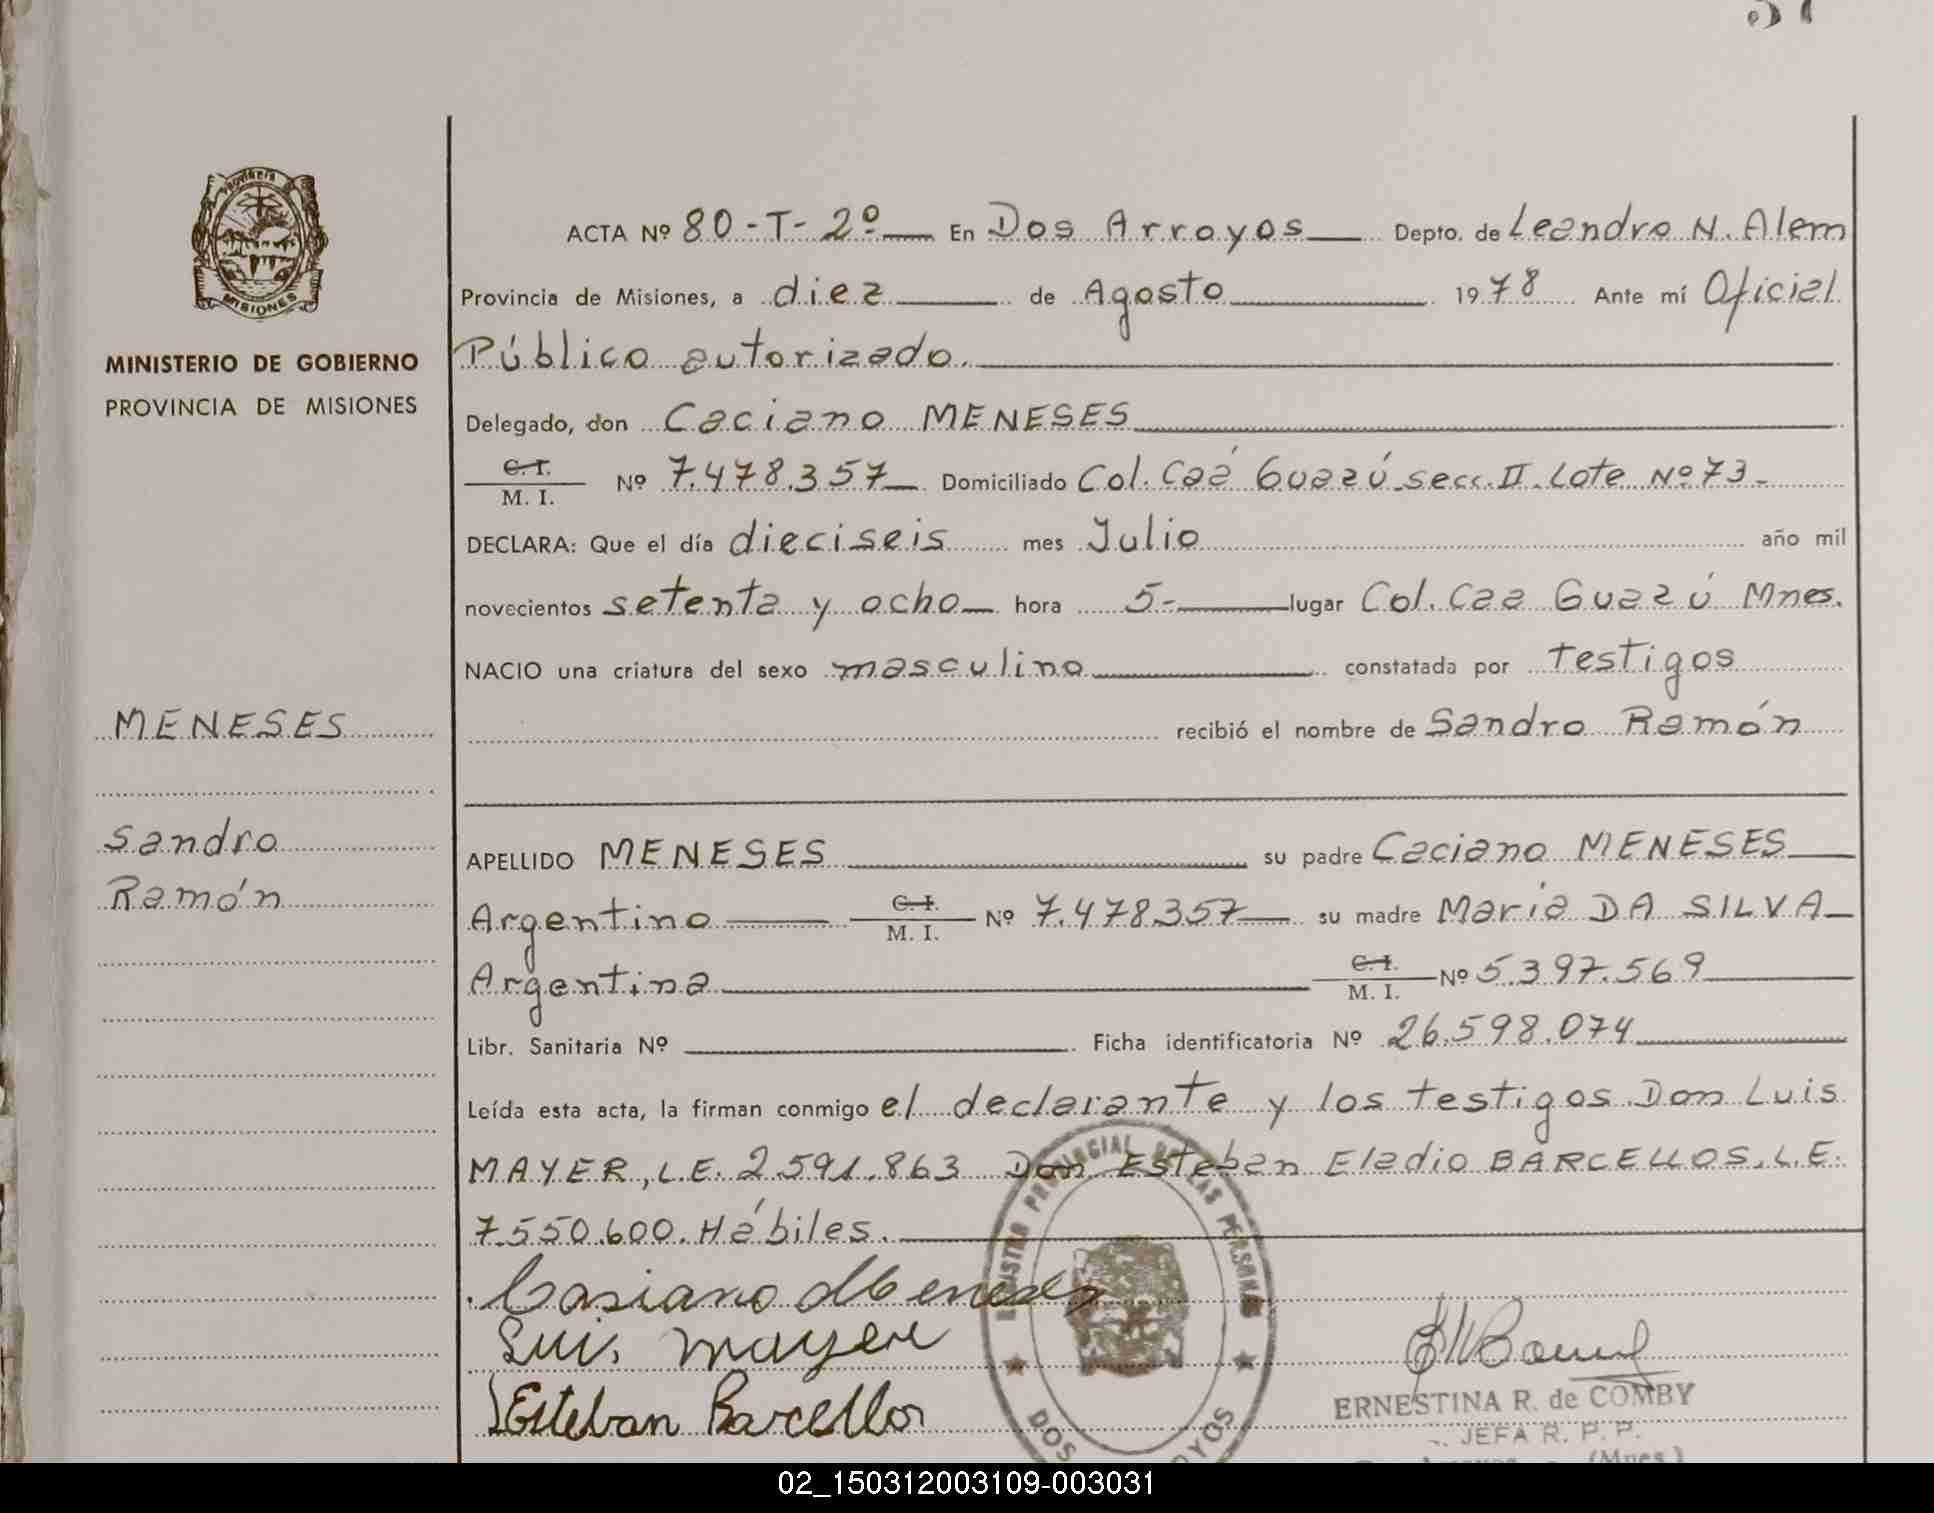 37
PROVINCIA
MISIONES
MINISTERIO DE GOBIERNO
PROVINCIA DE MISIONES
MENESES
Sandro
Ramón
ACTA Nº 80-T-2º En Dos Arroyos Depto. de Leandro N. Alem
Provincia de Misiones, a diez de Agosto 1978 Ante mí Oficial
Público autorizado.
Delegado, don Caciano MENESES
C. I.
M. I. Nº 7.478.357 Domiciliado Col. Caá Guazú secc. II. Lote Nº 73-
DECLARA: Que el día dieciseis mes Julio año mil
novecientos setenta y ocho hora 5- lugar Col. Caa Guazú Mnes.
NACIO una criatura del sexo masculino constatada por testigos
recibió el nombre de Sandro Ramón
APELLIDO MENESES su padre Caciano MENESES
Argentino C. I. M. I. Nº 7.478357 su madre María DA SILVA
Argentina C. I. M. I. Nº 5.397.569
Libr. Sanitaria Nº Ficha identificatoria Nº 26.598.074
Leída esta acta, la firman conmigo el declarante y los testigos Don Luis
MAYER, L.E. 2.591.863 Don Esteban Eladio BARCELLOS, L.E.
7.550.600. Hábiles.
Casiano Meneses
Luis Mayer
Esteban Barcellos
REGISTRO PROVINCIAL DE LAS PERSONAS
DOS ARROYOS
ERNESTINA R. de COMBY
JEFA R. P. P.
(Mnes.)
02_150312003109-003031